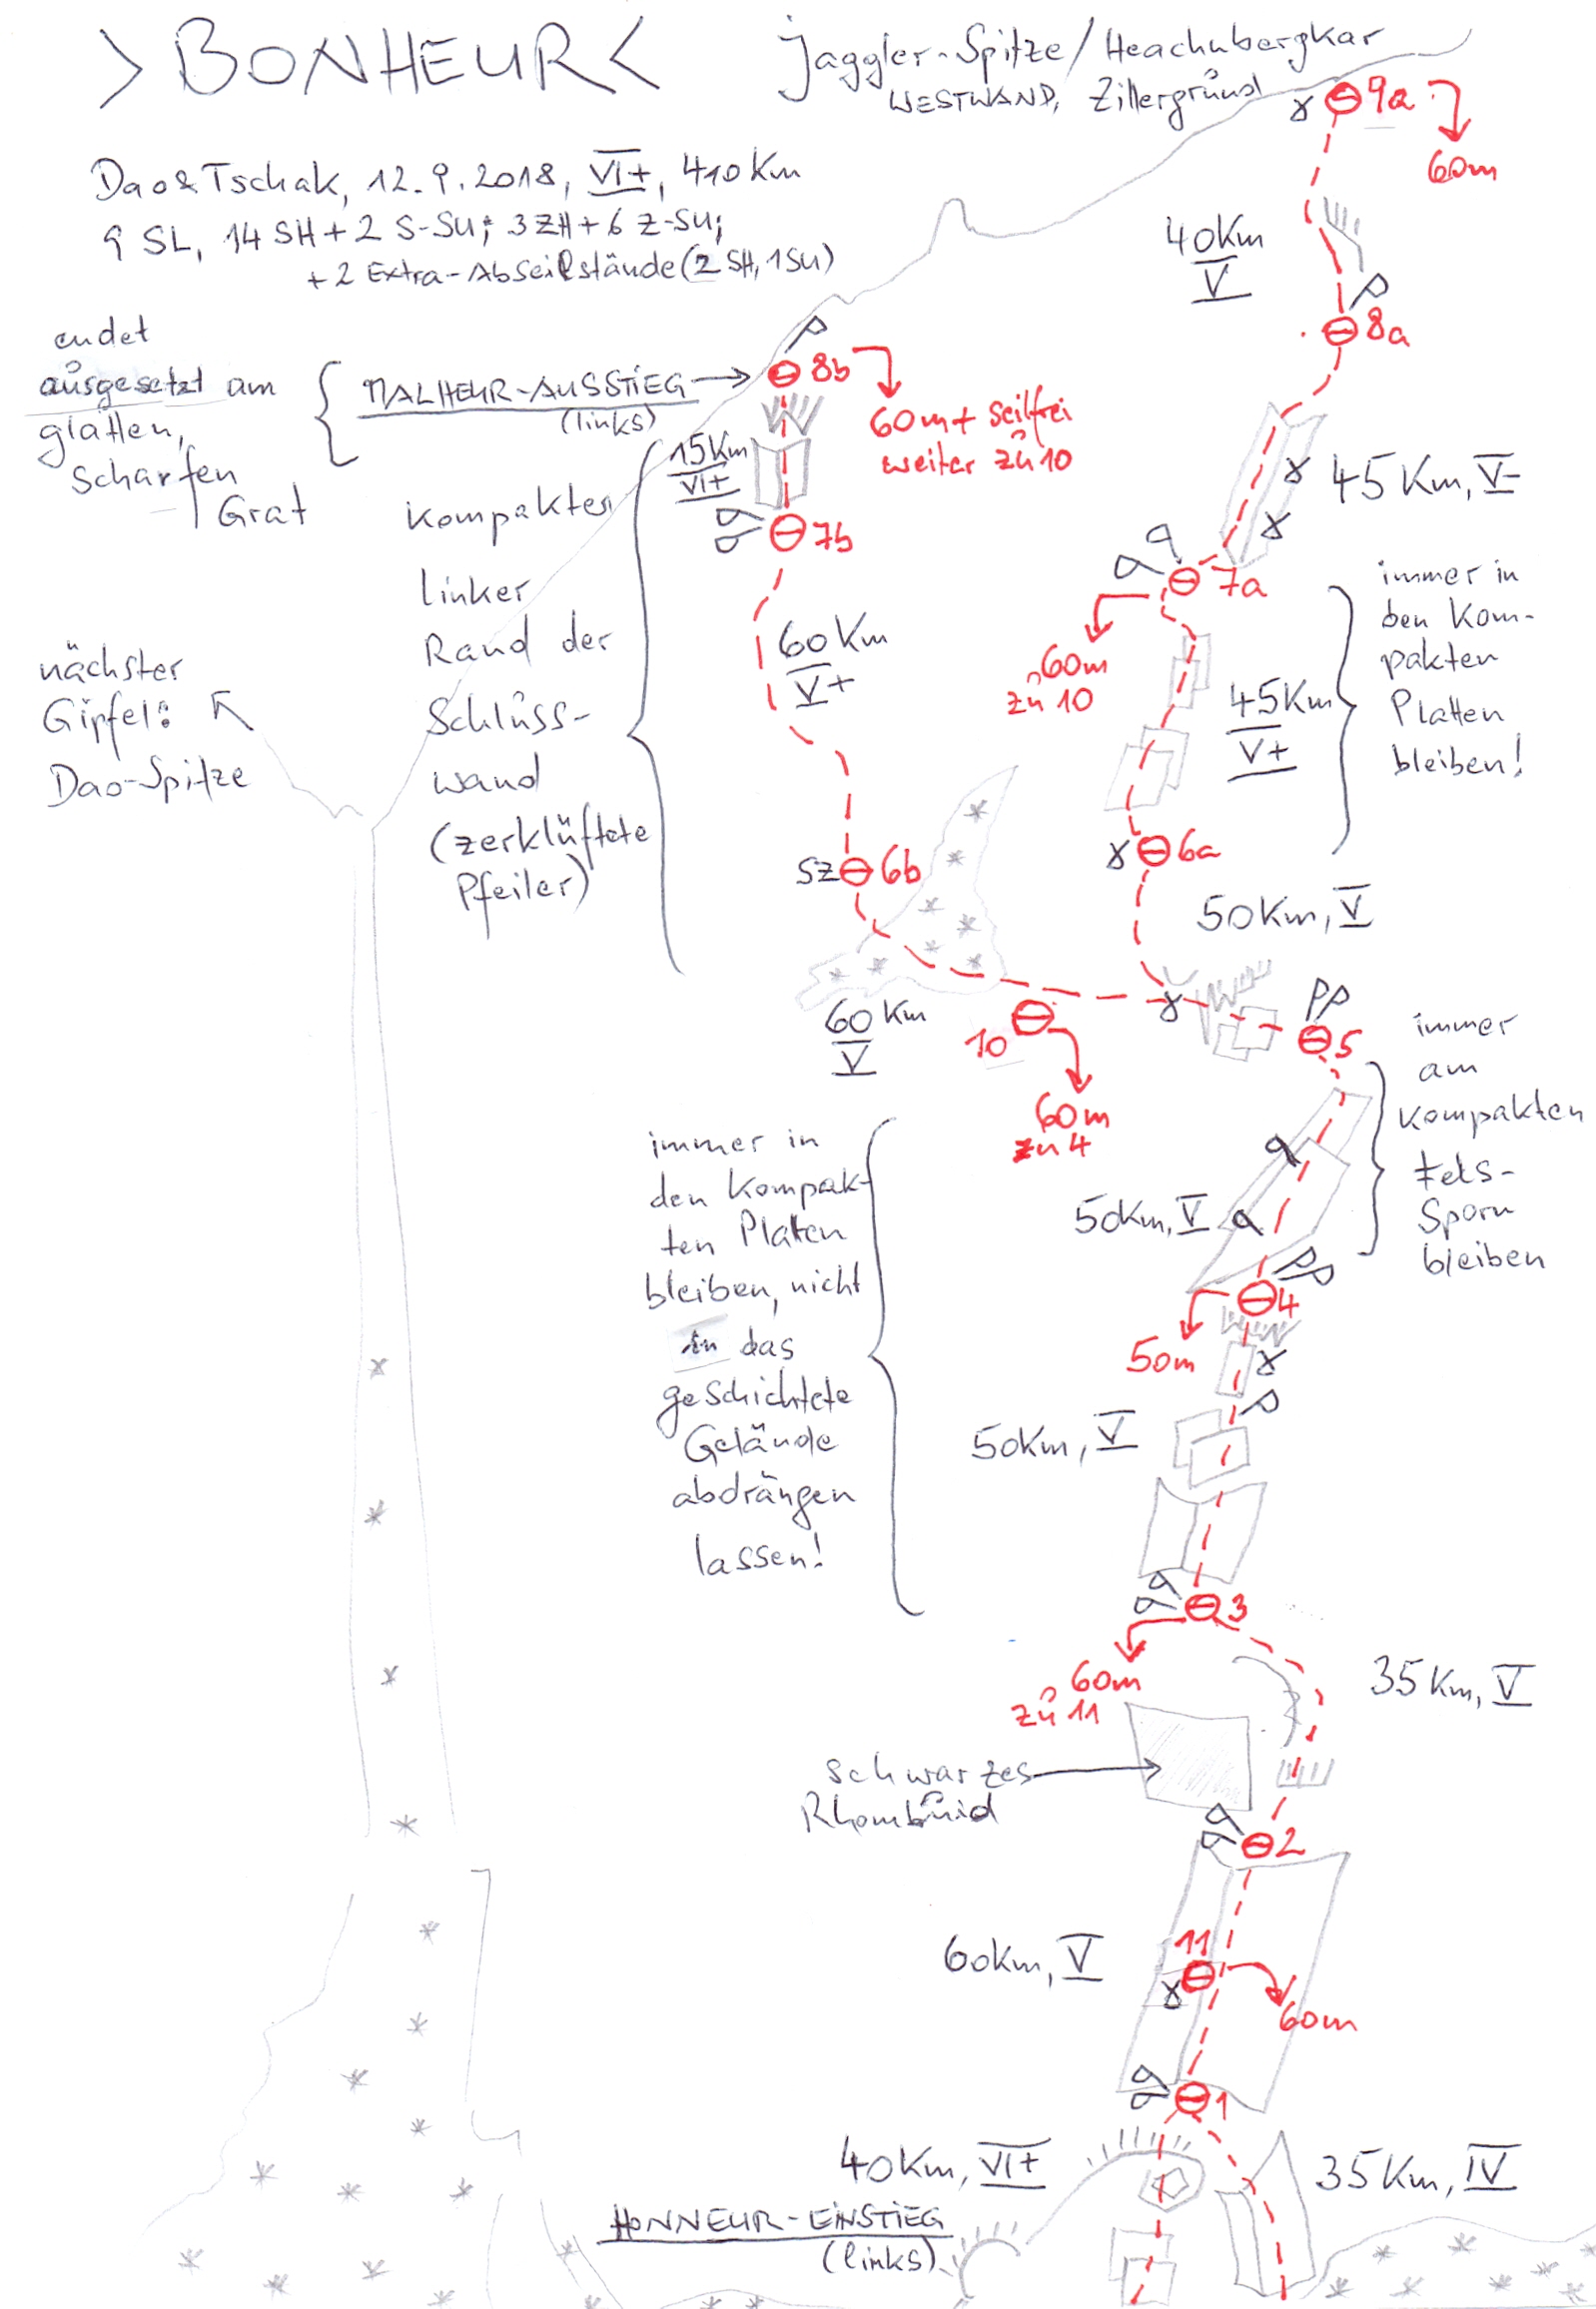 > BONHEUR <
Jaggler-Spitze/Heachnbergkar
WESTWAND, Zillergrund
Dao & Tschak, 12.9.2018, VI+, 410 Km
9 SL, 14 SH + 2 S-SU; 3 ZH + 6 Z-SU;
+ 2 Extra-Abseilstände (2 SH, 1 SU)
9a
60m
40 Km
V
8a
endet
ausgesetzt am
glatten,
scharfen
Grat
MALHEUR-AUSSTIEG
(links)
8b
60m + seilfrei
weiter zu 10
15 Km
VI+
7b
45 Km, V-
7a
60m
zu 10
kompakter
linker
Rand der
Schluss-
wand
(zerklüftete
Pfeiler)
60 Km
V+
45 Km
V+
immer in
den kom-
pakten
Platten
bleiben!
nächster
Gipfel:
Dao-Spitze
SZ
6b
6a
50 Km, V
60 Km
V
10
60m
zu 4
5
immer
am
kompakten
Fels-
Sporn
bleiben
50 Km, V
4
50m
immer in
den kompak-
ten Platten
bleiben, nicht
in das
geschichtete
Gelände
abdrängen
lassen!
50 Km, V
3
60m
zu 11
35 Km, V
schwarzes
Rhomboid
2
60 Km, V
11
60m
1
40 Km, VI+
35 Km, IV
HONNEUR-EINSTIEG
(links)